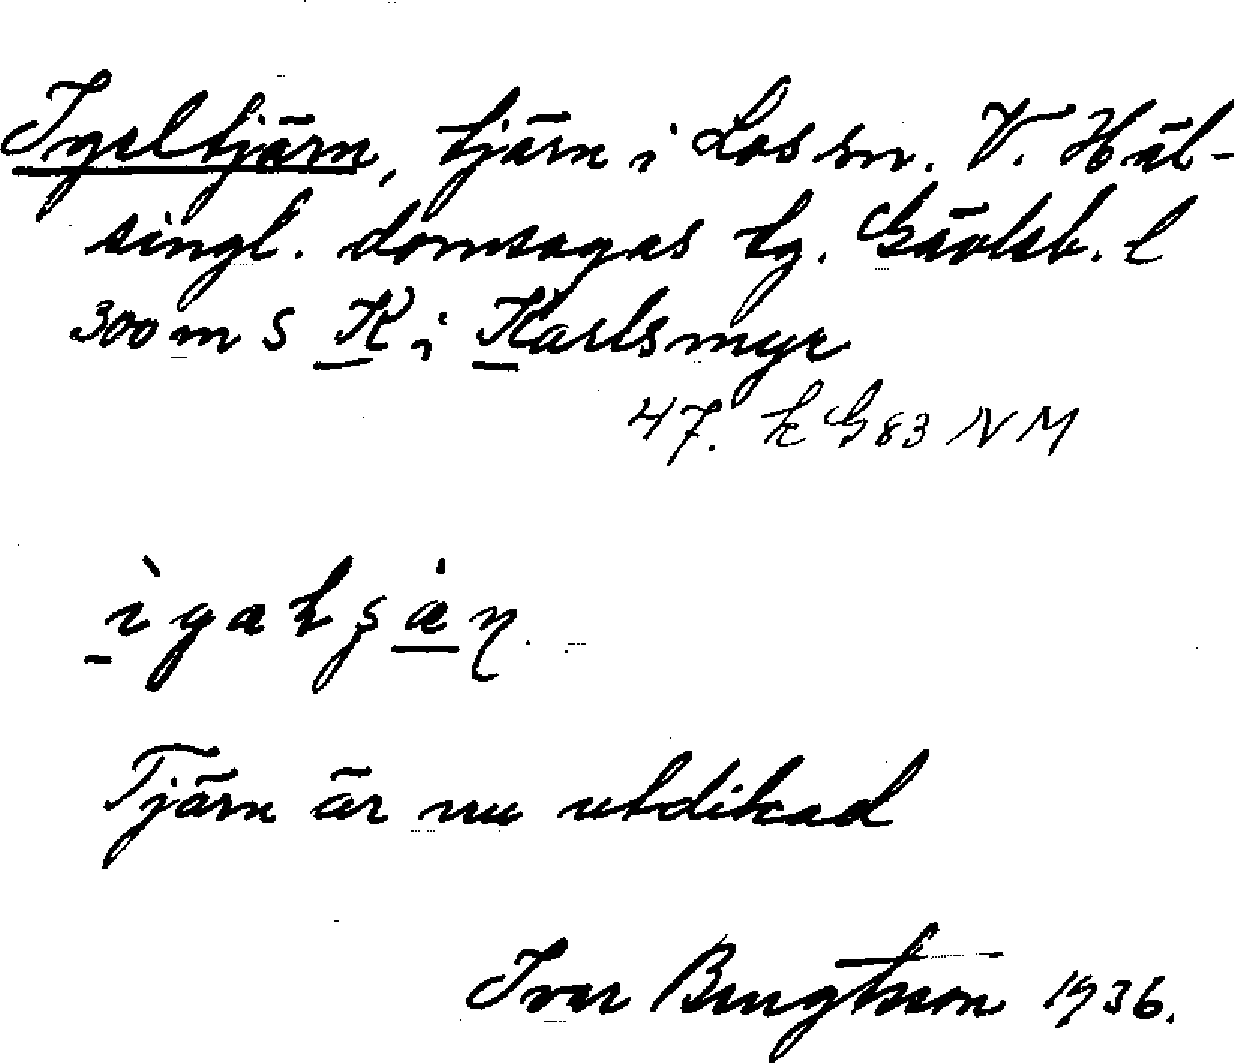 Igeltjärn, tjärn i Los sn. V. Häl-
singl. domsagas tg. Gävleb. l
300 m S K i Karlsmyr
47. k G 83 NM
Tjärn är nu utdikad
Ivar Bengtsson 1936.